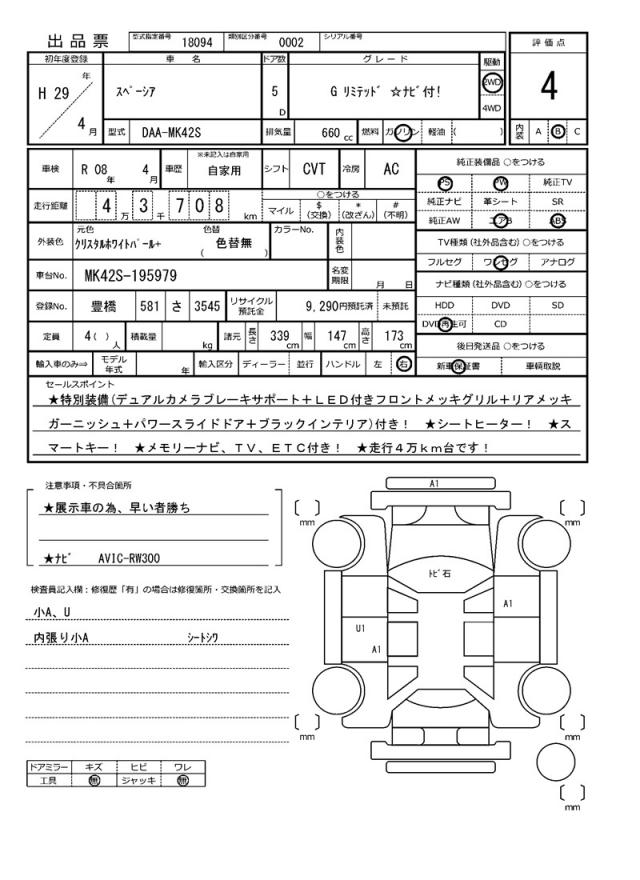 出品票 型式指定番号 18094 類別区分番号 0002 シリアル番号
評価点
4
内装 A B C
初年度登録 車名 ドア数 グレード 駆動
H 29 年 4 月
スペーシア 5 D G リミテッド ☆ナビ付! 2WD 4WD
型式 DAA-MK42S 排気量 660 cc 燃料 ガソリン 軽油 ( )
車検 R 08 年 4 月 車歴 ※未記入は自家用 自家用 シフト CVT 冷房 AC
走行距離 4 万 3 千 7 0 8 km
○をつける
マイル $ (交換) * (改ざん) # (不明)
外装色 元色 クリスタルホワイトパール+ 色替 ( 色替無 ) カラーNo. 内装色
車台No. MK42S-195979 名変期限 月 日
登録No. 豊橋 581 さ 3545 リサイクル預託金 9,290円預託済 未預託
定員 4( ) 人 積載量 kg 諸元 長さ 339 cm 幅 147 cm 高さ 173 cm
輸入車のみ⇒ モデル年式 年 輸入区分 ディーラー 並行 ハンドル 左 右
純正装備品 ○をつける
PS PW 純正TV
純正ナビ 革シート SR
純正AW エアB ABS
TV種類 (社外品含む) ○をつける
フルセグ ワンセグ アナログ
ナビ種類 (社外品含む) ○をつける
HDD DVD SD
DVD再生可 CD
後日発送品 ○をつける
新車保証書 車輌取説
セールスポイント
★特別装備(デュアルカメラブレーキサポート+LED付きフロントメッキグリル+リアメッキ
ガーニッシュ+パワースライドドア+ブラックインテリア)付き! ★シートヒーター! ★ス
マートキー! ★メモリーナビ、TV、ETC付き! ★走行4万km台です!
注意事項・不具合箇所
★展示車の為、早い者勝ち
★ナビ AVIC-RW300
検査員記入欄:修復歴「有」の場合は修復箇所・交換箇所を記入
小A、U
内張り小A シートシワ
ドアミラー キズ ヒビ ワレ
工具 無 ジャッキ 無
A1
mm
mm
トビ石
A1
U1
A1
mm
mm
mm